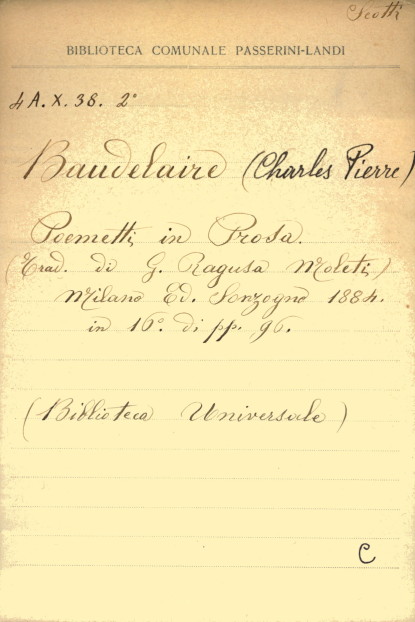 Scotti
BIBLIOTECA COMUNALE PASSERINI-LANDI
4 A. X. 38. 2°
Baudelaire (Charles Pierre)
Poemetti in Prosa.
(Trad. di G. Ragusa Moleti)
Milano Ed. Sonzogno 1884.
in 16°. di pp. 96.
(Biblioteca Universale)
C